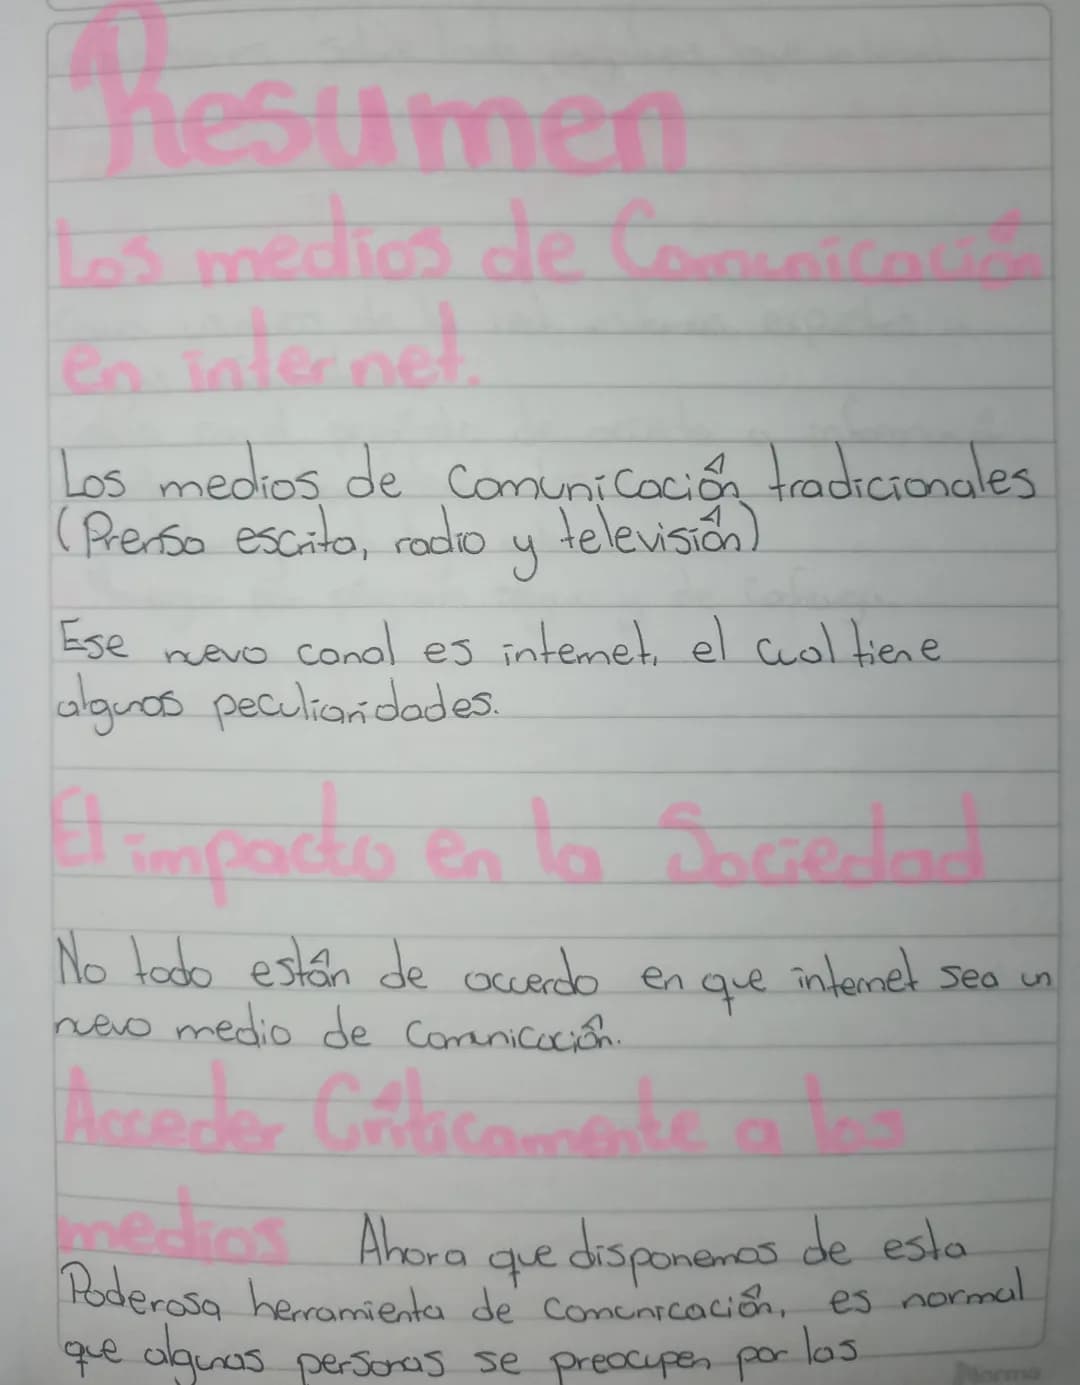 Resumen
Los medios de Comunicación
en internet.
Los medios de Comunicación tradicionales
(Prensa escrita, radio y televisión)
Ese nuevo canal es internet, el cual tiene
algunas peculiaridades.
El impacto en la Sociedad
No todo están de acuerdo en que internet sea un
nuevo medio de Comunicación.
Acceder Críticamente a los
medios Ahora que disponemos de esta
Poderosa herramienta de comunicación, es normal
que algunas personas se preocupen por las
Norma